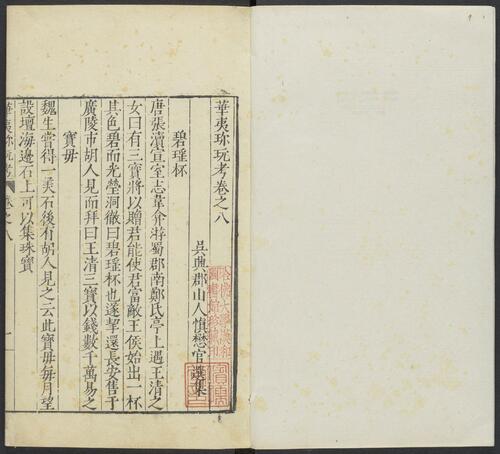 華夷珎玩考卷之八
吳興郡山人慎懋官選集
碧瑶杯
唐張瀆宣室志韋弇游蜀郡南鄭氏亭上遇玉清之
女曰有三寶將以贈君能使君富敵王侯始出一杯
其色碧而光瑩洞徹曰碧瑶杯也遂挈還長安售于
廣陵市胡人見而拜曰玉清三寶以錢數千萬易之
寶毋
魏生嘗得一美石後有胡人見之云此寶毋每月望
設壇海邊石上可以集珠寶
華夷珎玩考
卷之八
一